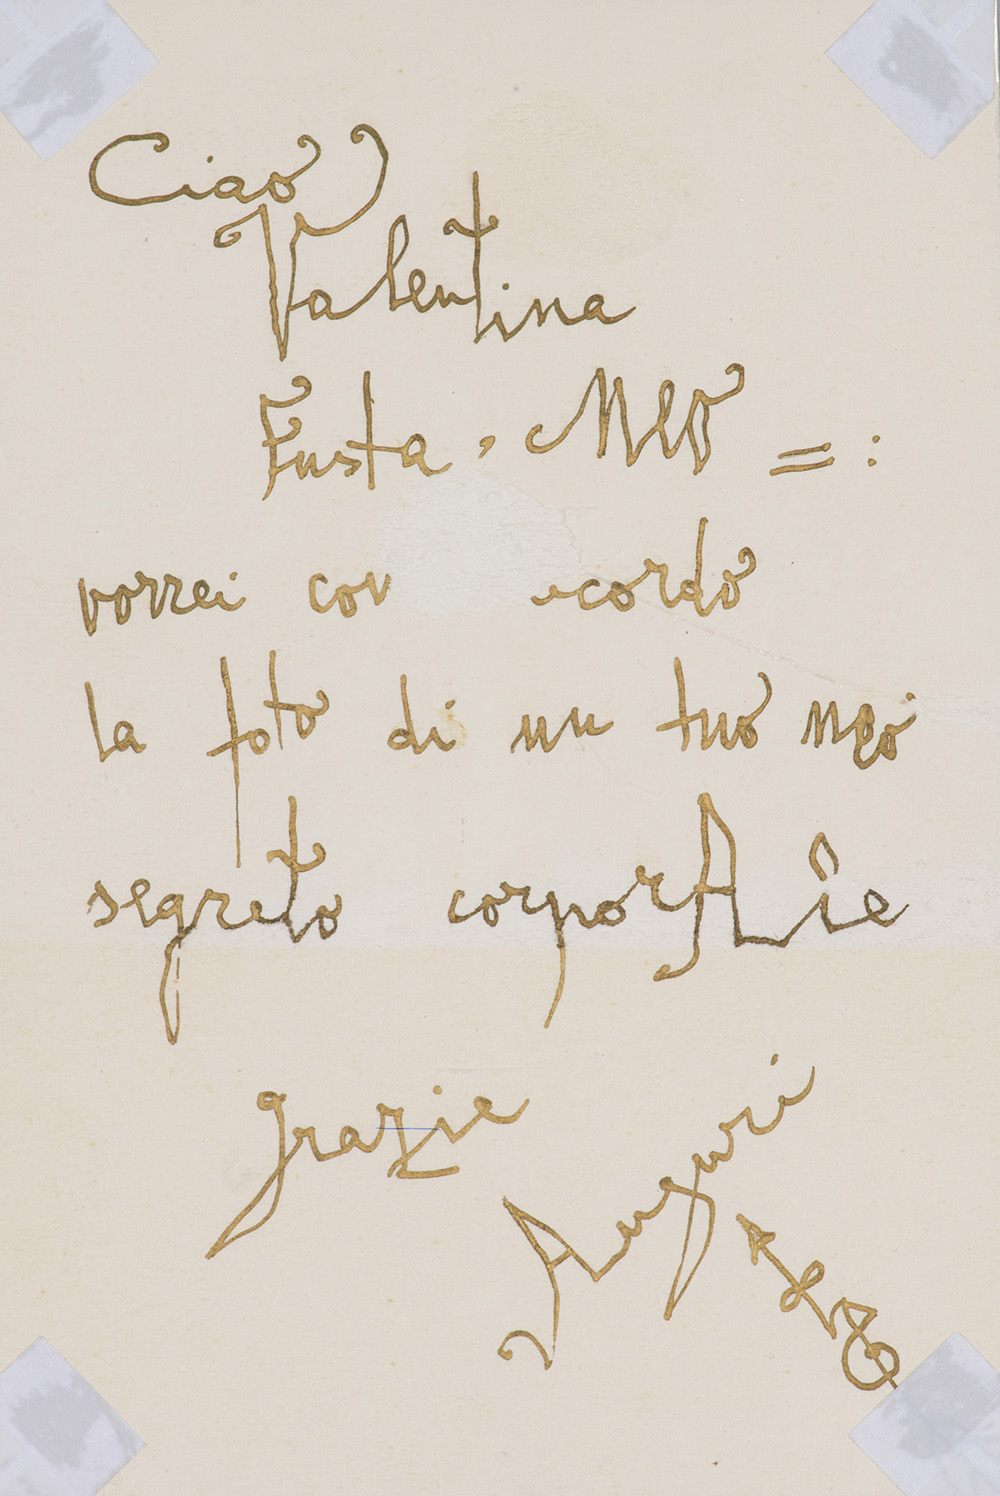 Ciao
Valentina
Fusta, Neo = :
vorrei
la foto di un tuo neo
segreto corporAle
grazie
Auguri